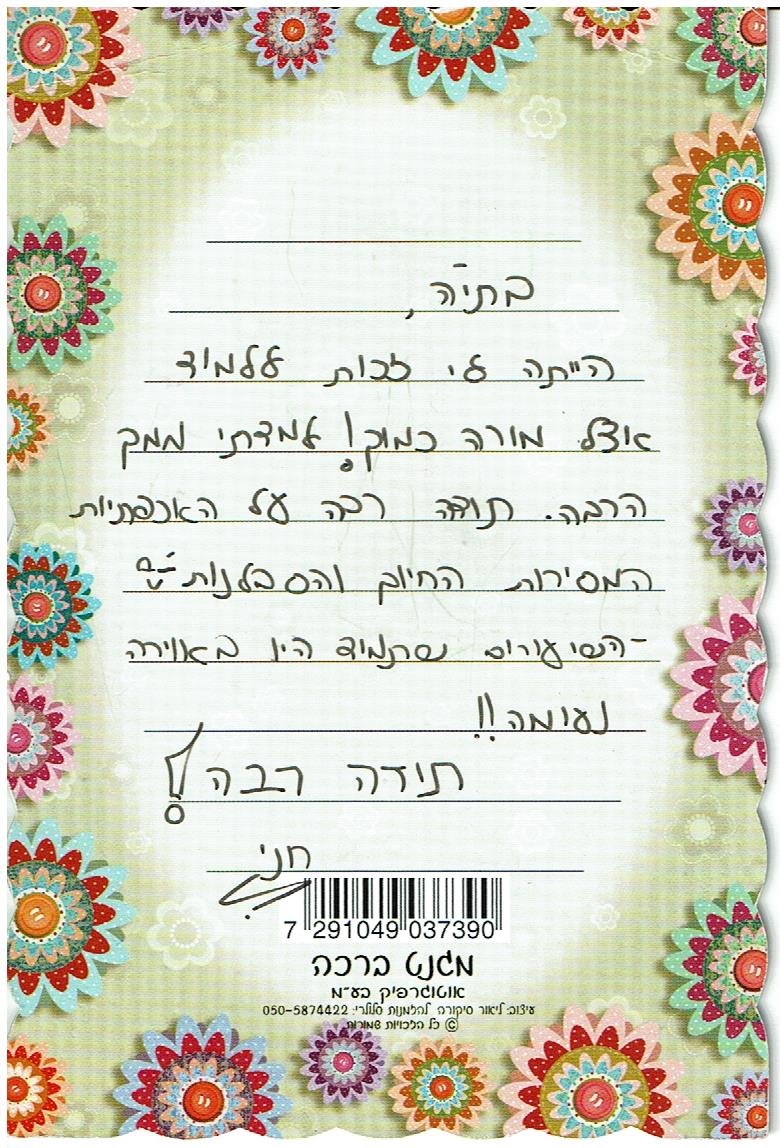 בתיה,
הייתה לי זכות ללמוד
אצל מורה כמוך! למדתי ממך
הרבה. תודה רבה על האכפתיות
המסירות החיוך והסבלנות
-השיעורים שתמיד היו באוירה
נעימה!!
תודה רבה!
חני
7 291049 037390
מגנט ברכה
אוטוגרפיק בע"מ
עיצוב: ליאור סיקורה להזמנות סלולרי: 050-5874422
© כל הזכויות שמורות